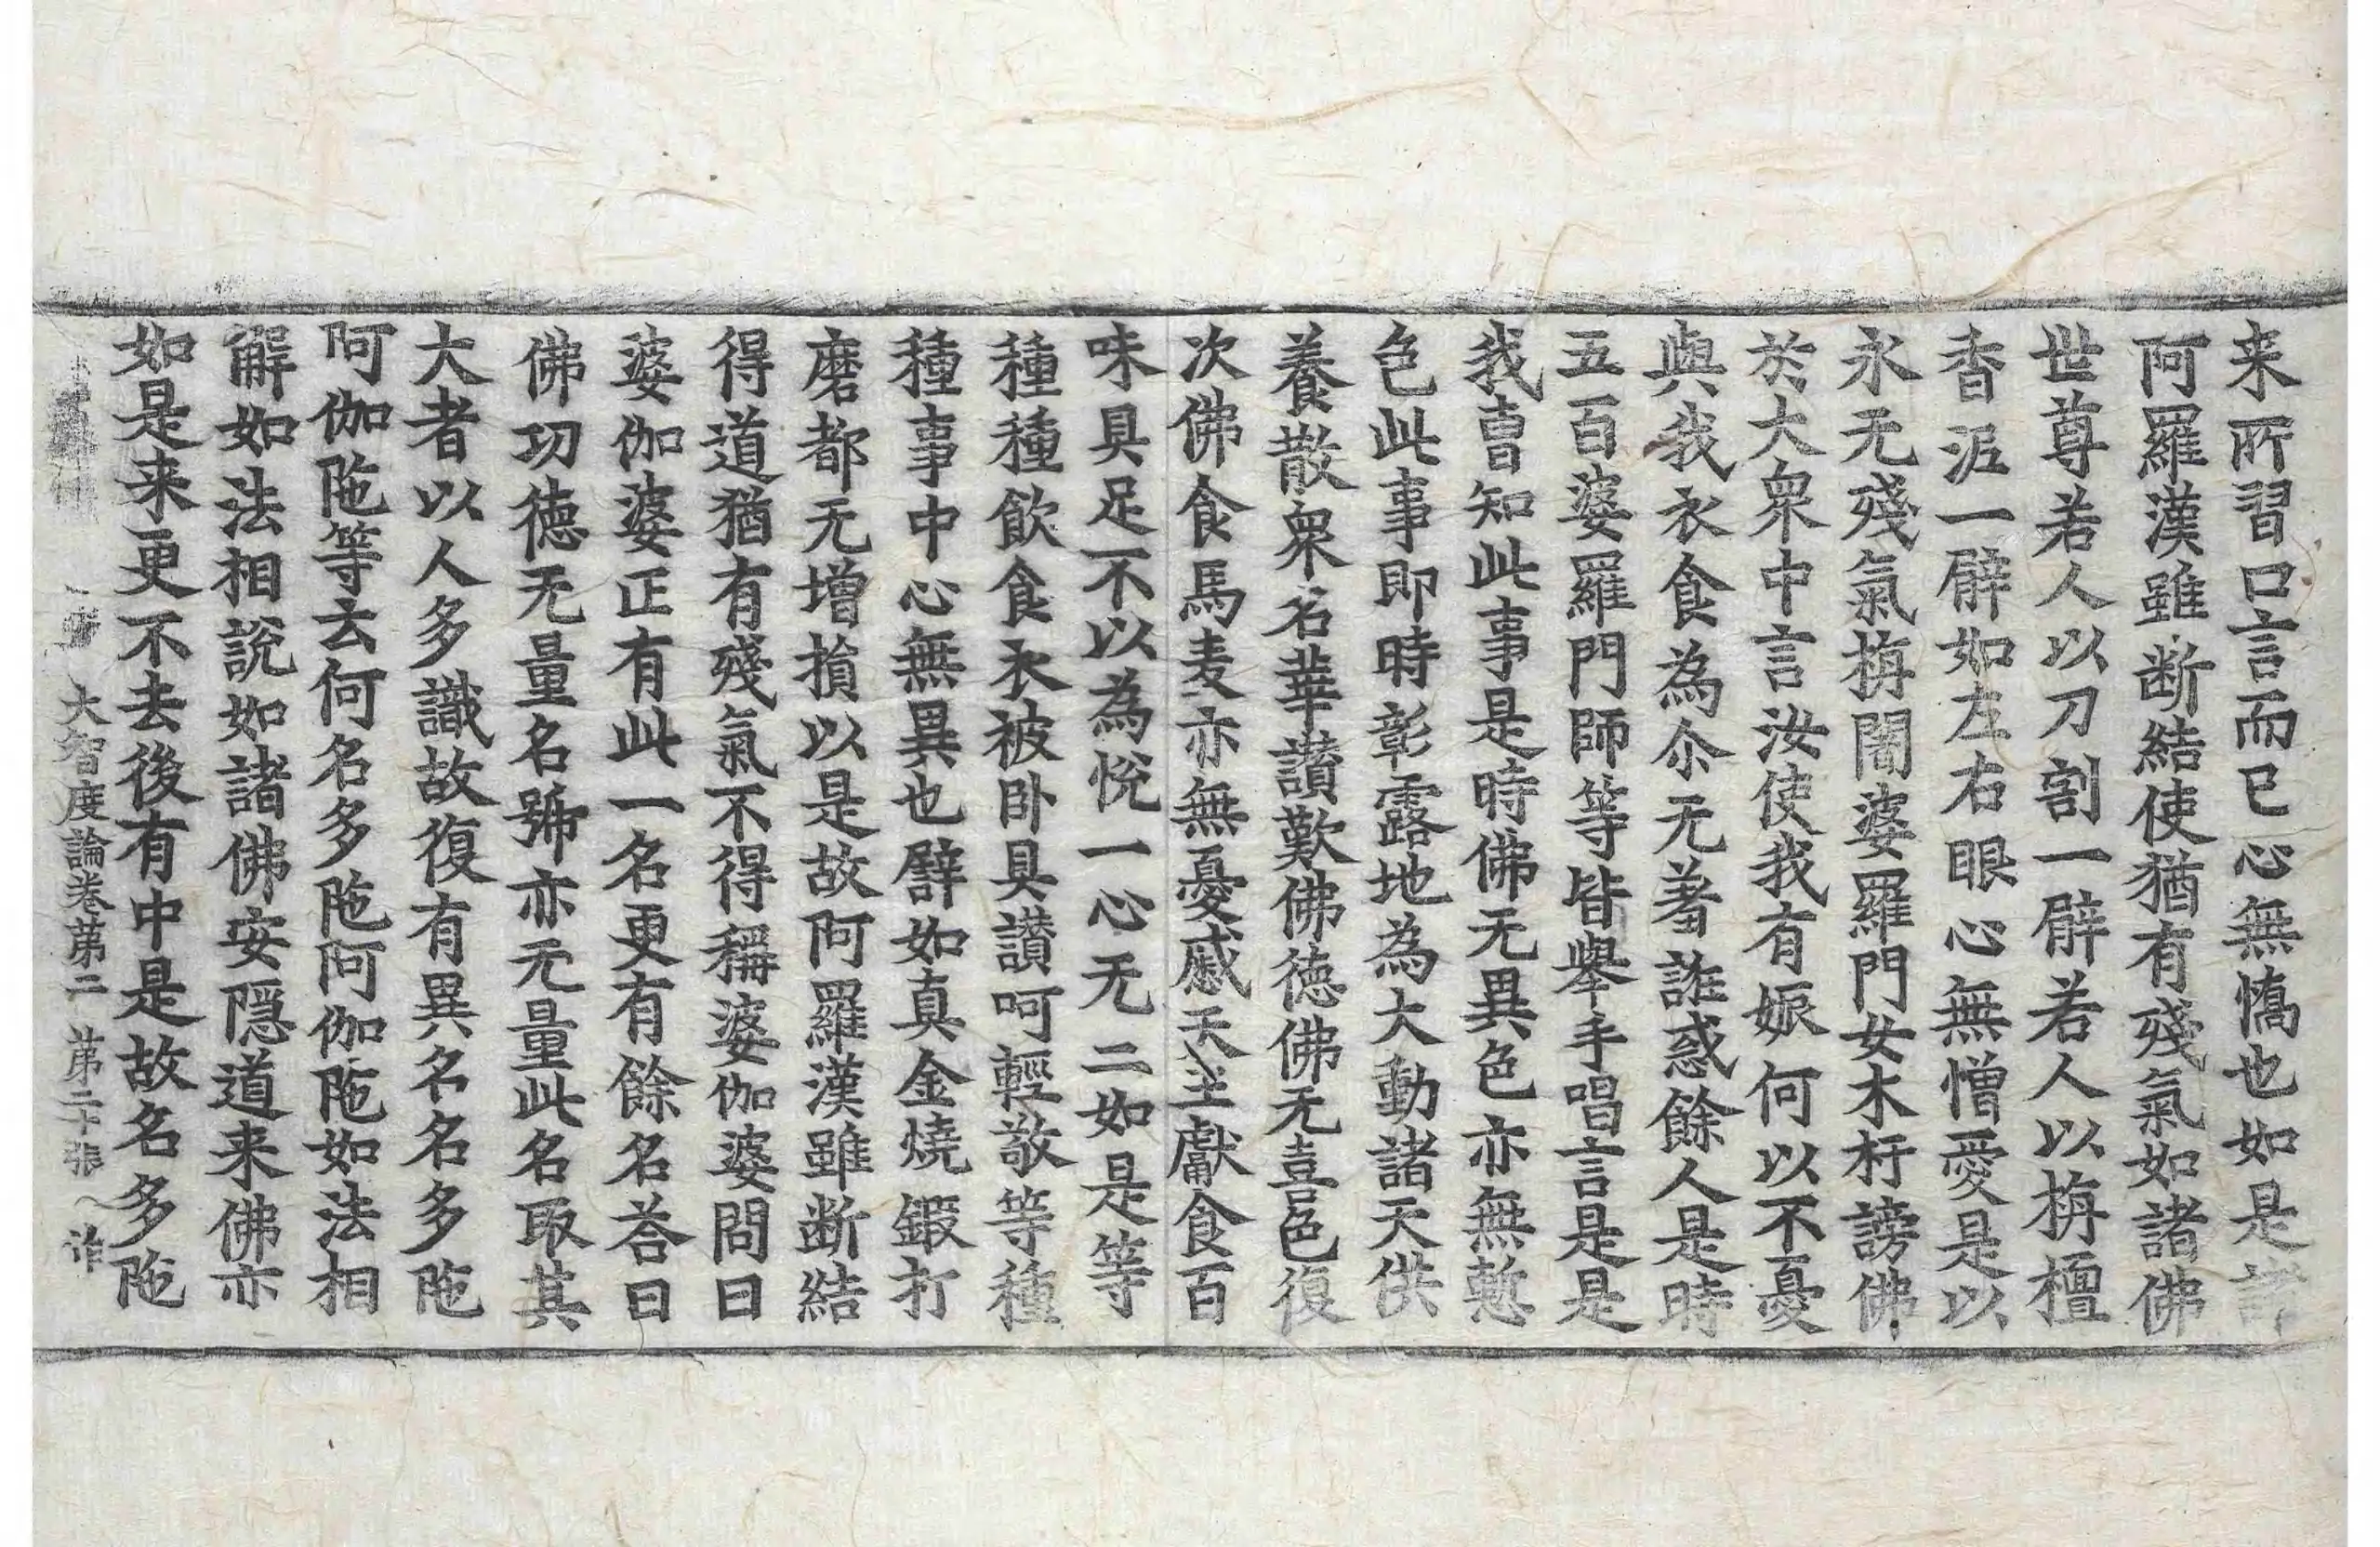 来所習口言而已心無憍也如是諸
阿羅漢雖断結使猶有殘氣如諸佛
世尊若人以刀割一臂若人以栴檀
香泥一臂如左右眼心無憎愛是以
永无殘氣栴闍婆羅門女木杅謗佛
於大衆中言汝使我有娠何以不憂
與我衣食為尒无羞誑惑餘人是時
五百婆羅門師等皆舉手唱言是是
我曺知此事是時佛无異色亦無慙
色此事即時彰露地為大動諸天供
養散衆名華讃歎佛徳佛无喜色復
次佛食馬麦亦無憂慼天王獻食百
味具足不以為悅一心无二如是等
種種飲食衣被卧具讃呵輕敬等種
種事中心無異也譬如真金燒鍛打
磨都无增損以是故阿羅漢雖断結
得道猶有殘氣不得稱婆伽婆問曰
婆伽婆正有此一名更有餘名荅曰
佛功徳无量名號亦无量此名取其
大者以人多識故復有異名名多陁
阿伽陁等云何名多陁阿伽陁如法相
解如法相說如諸佛安隱道来佛亦
如是来更不去後有中是故名多陁
大智度論卷第二 第二十張 作